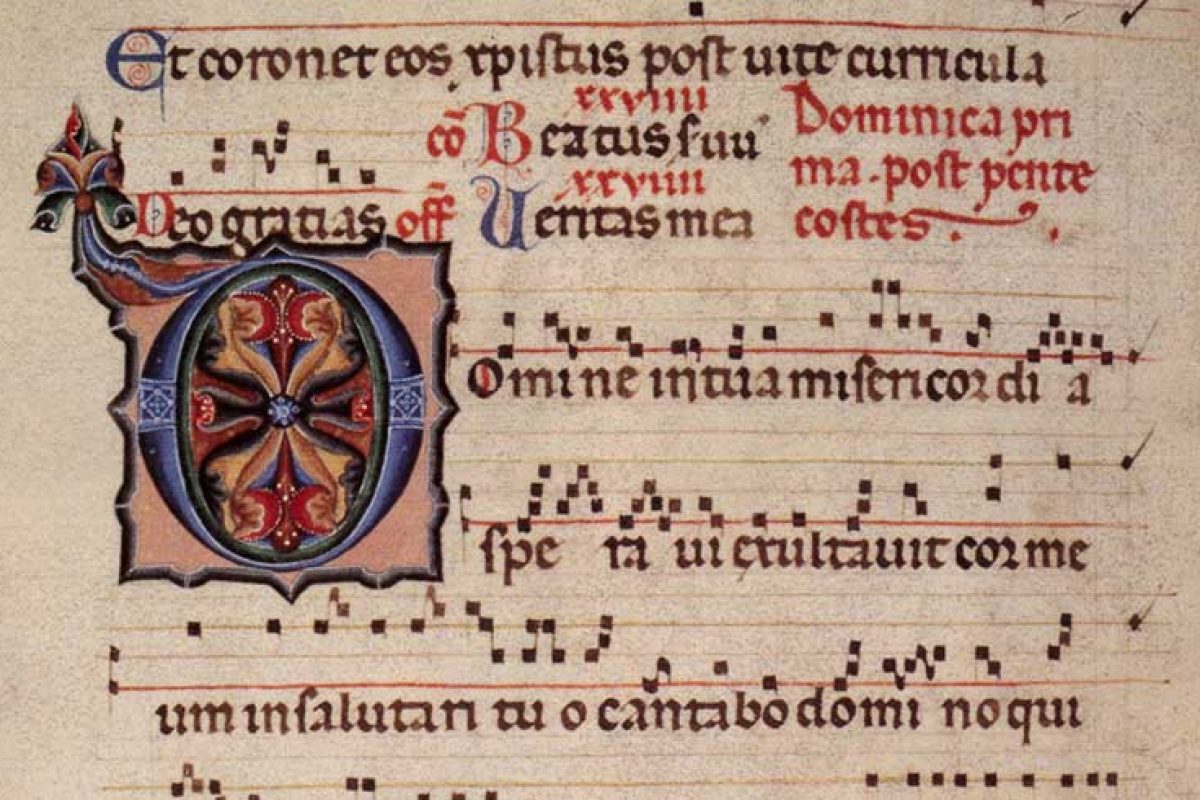 Et coronet eos xpistus post uite curricula
xxviiii
cō Beatus seruu Dominica pri
xxviiii ma. post pente
Deo gratias off Veritas mea costes.
Domine in tua misericordia
spe ra ui exultauit cor me
um in salutari tu o cantabo domi no qui